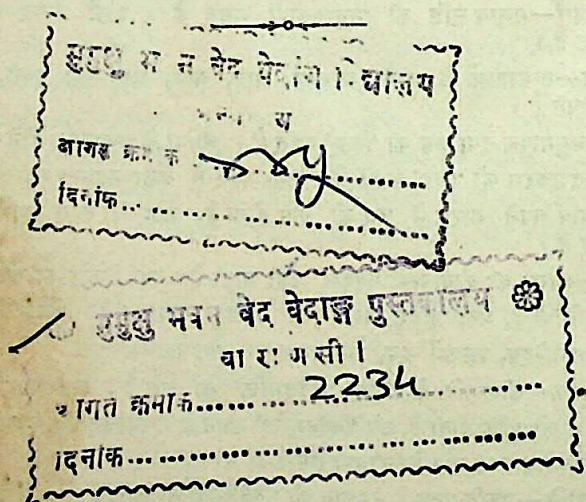 मुमुक्षु भ न वेद वेदांग विद्यालय
ग्रन्थालय
आगत क्रमांक
दिनांक
मुमुक्षु भवन वेद वेदाङ्ग पुस्तकालय
वाराणसी।
आगत क्रमांक 2234
दिनांक